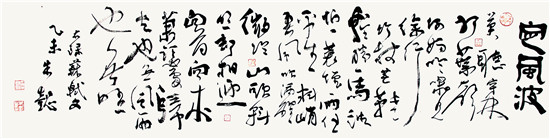 定風波
莫聽穿林
打葉聲
何妨吟嘯且
徐行
竹杖芒
鞋輕勝馬誰
怕一蓑煙雨任
平生料峭
春風吹酒醒
微冷山頭斜
照卻相迎
回首向來
蕭瑟處歸
去也無風雨
也無晴
蘇軾文
乙未